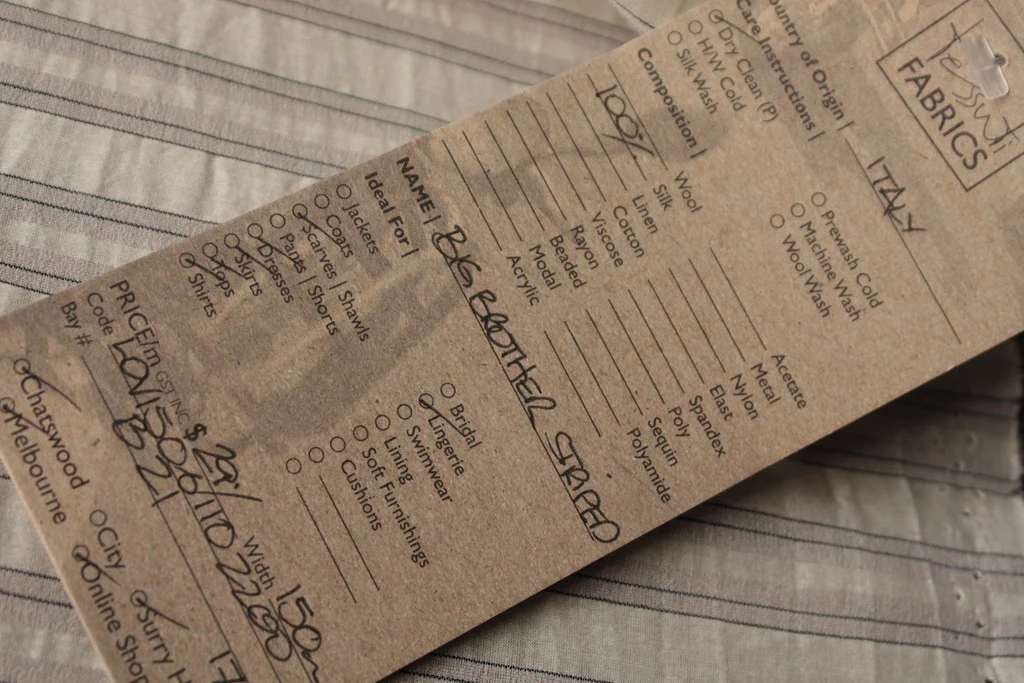 Tessuti
FABRICS
Country of Origin | ITALY
Care Instructions |
Dry Clean (P)
H/W Cold
Silk Wash
Prewash Cold
Machine Wash
Wool Wash
Composition |
Wool
Silk
100% Linen
Cotton
Viscose
Rayon
Beaded
Modal
Acrylic
Acetate
Metal
Nylon
Elast
Spandex
Poly
Sequin
Polyamide
NAME | BIG BROTHER STRIPED
Ideal For |
Jackets
Coats
Scarves | Shawls
Pants | Shorts
Dresses
Skirts
Tops
Shirts
Bridal
Lingerie
Swimwear
Lining
Soft Furnishings
Cushions
PRICE/m GST INC $ 29 Width 150
Code
Bay # B 21
Chatswood City Surry H
Melbourne Online Shop